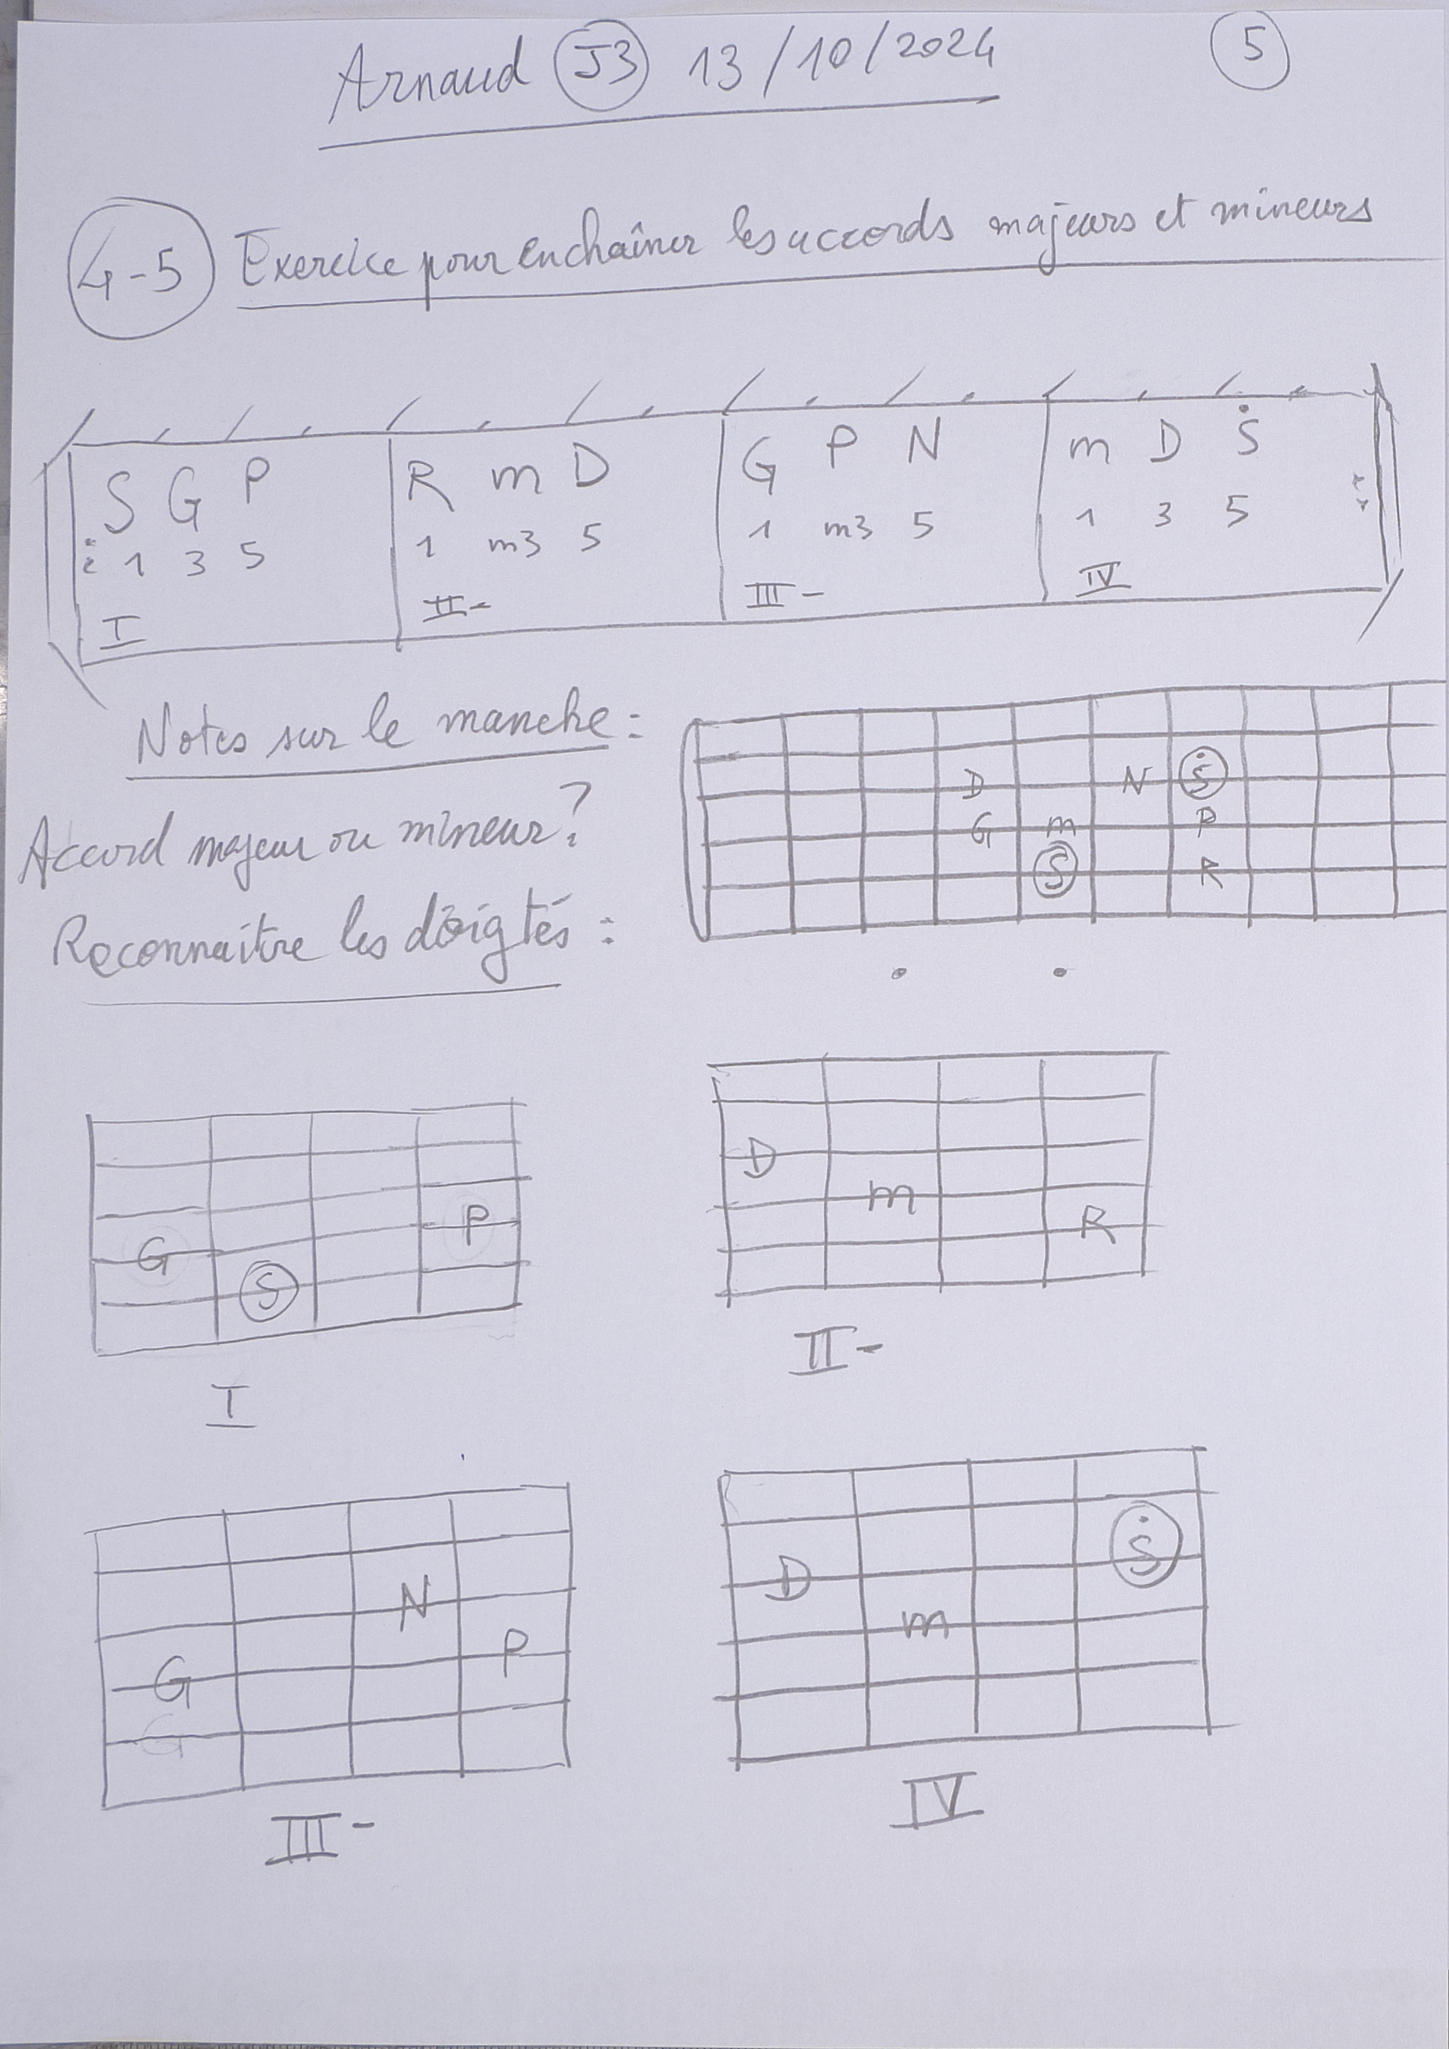 Arnaud J3 13/10/2024
5
4-5 Exercice pour enchaîner les accords majeurs et mineurs
S G P R m D G P N m D Ṡ
1 3 5 1 m3 5 1 m3 5 1 3 5
I II- III- IV
Notes sur le manche :
D N Ṡ
G m P
S R
Accord majeur ou mineur ?
Reconnaitre les doigtés :
G S P
I
D m R
II-
G N P
III-
D m Ṡ
IV